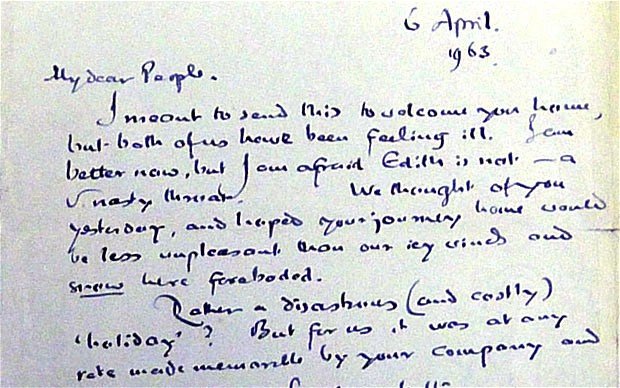 6 April.
1963.
My dear People.
I meant to send this to welcome you home,
but both of us have been feeling ill. I am
better now, but I am afraid Edith is not – a
v nasty throat. We thought of you
yesterday, and hoped your journey home would
be less unpleasant than our icy winds and
snow here foreboded.
Rather a disastrous (and costly)
'holiday'? But for us it was at any
rate made memorable by your company and